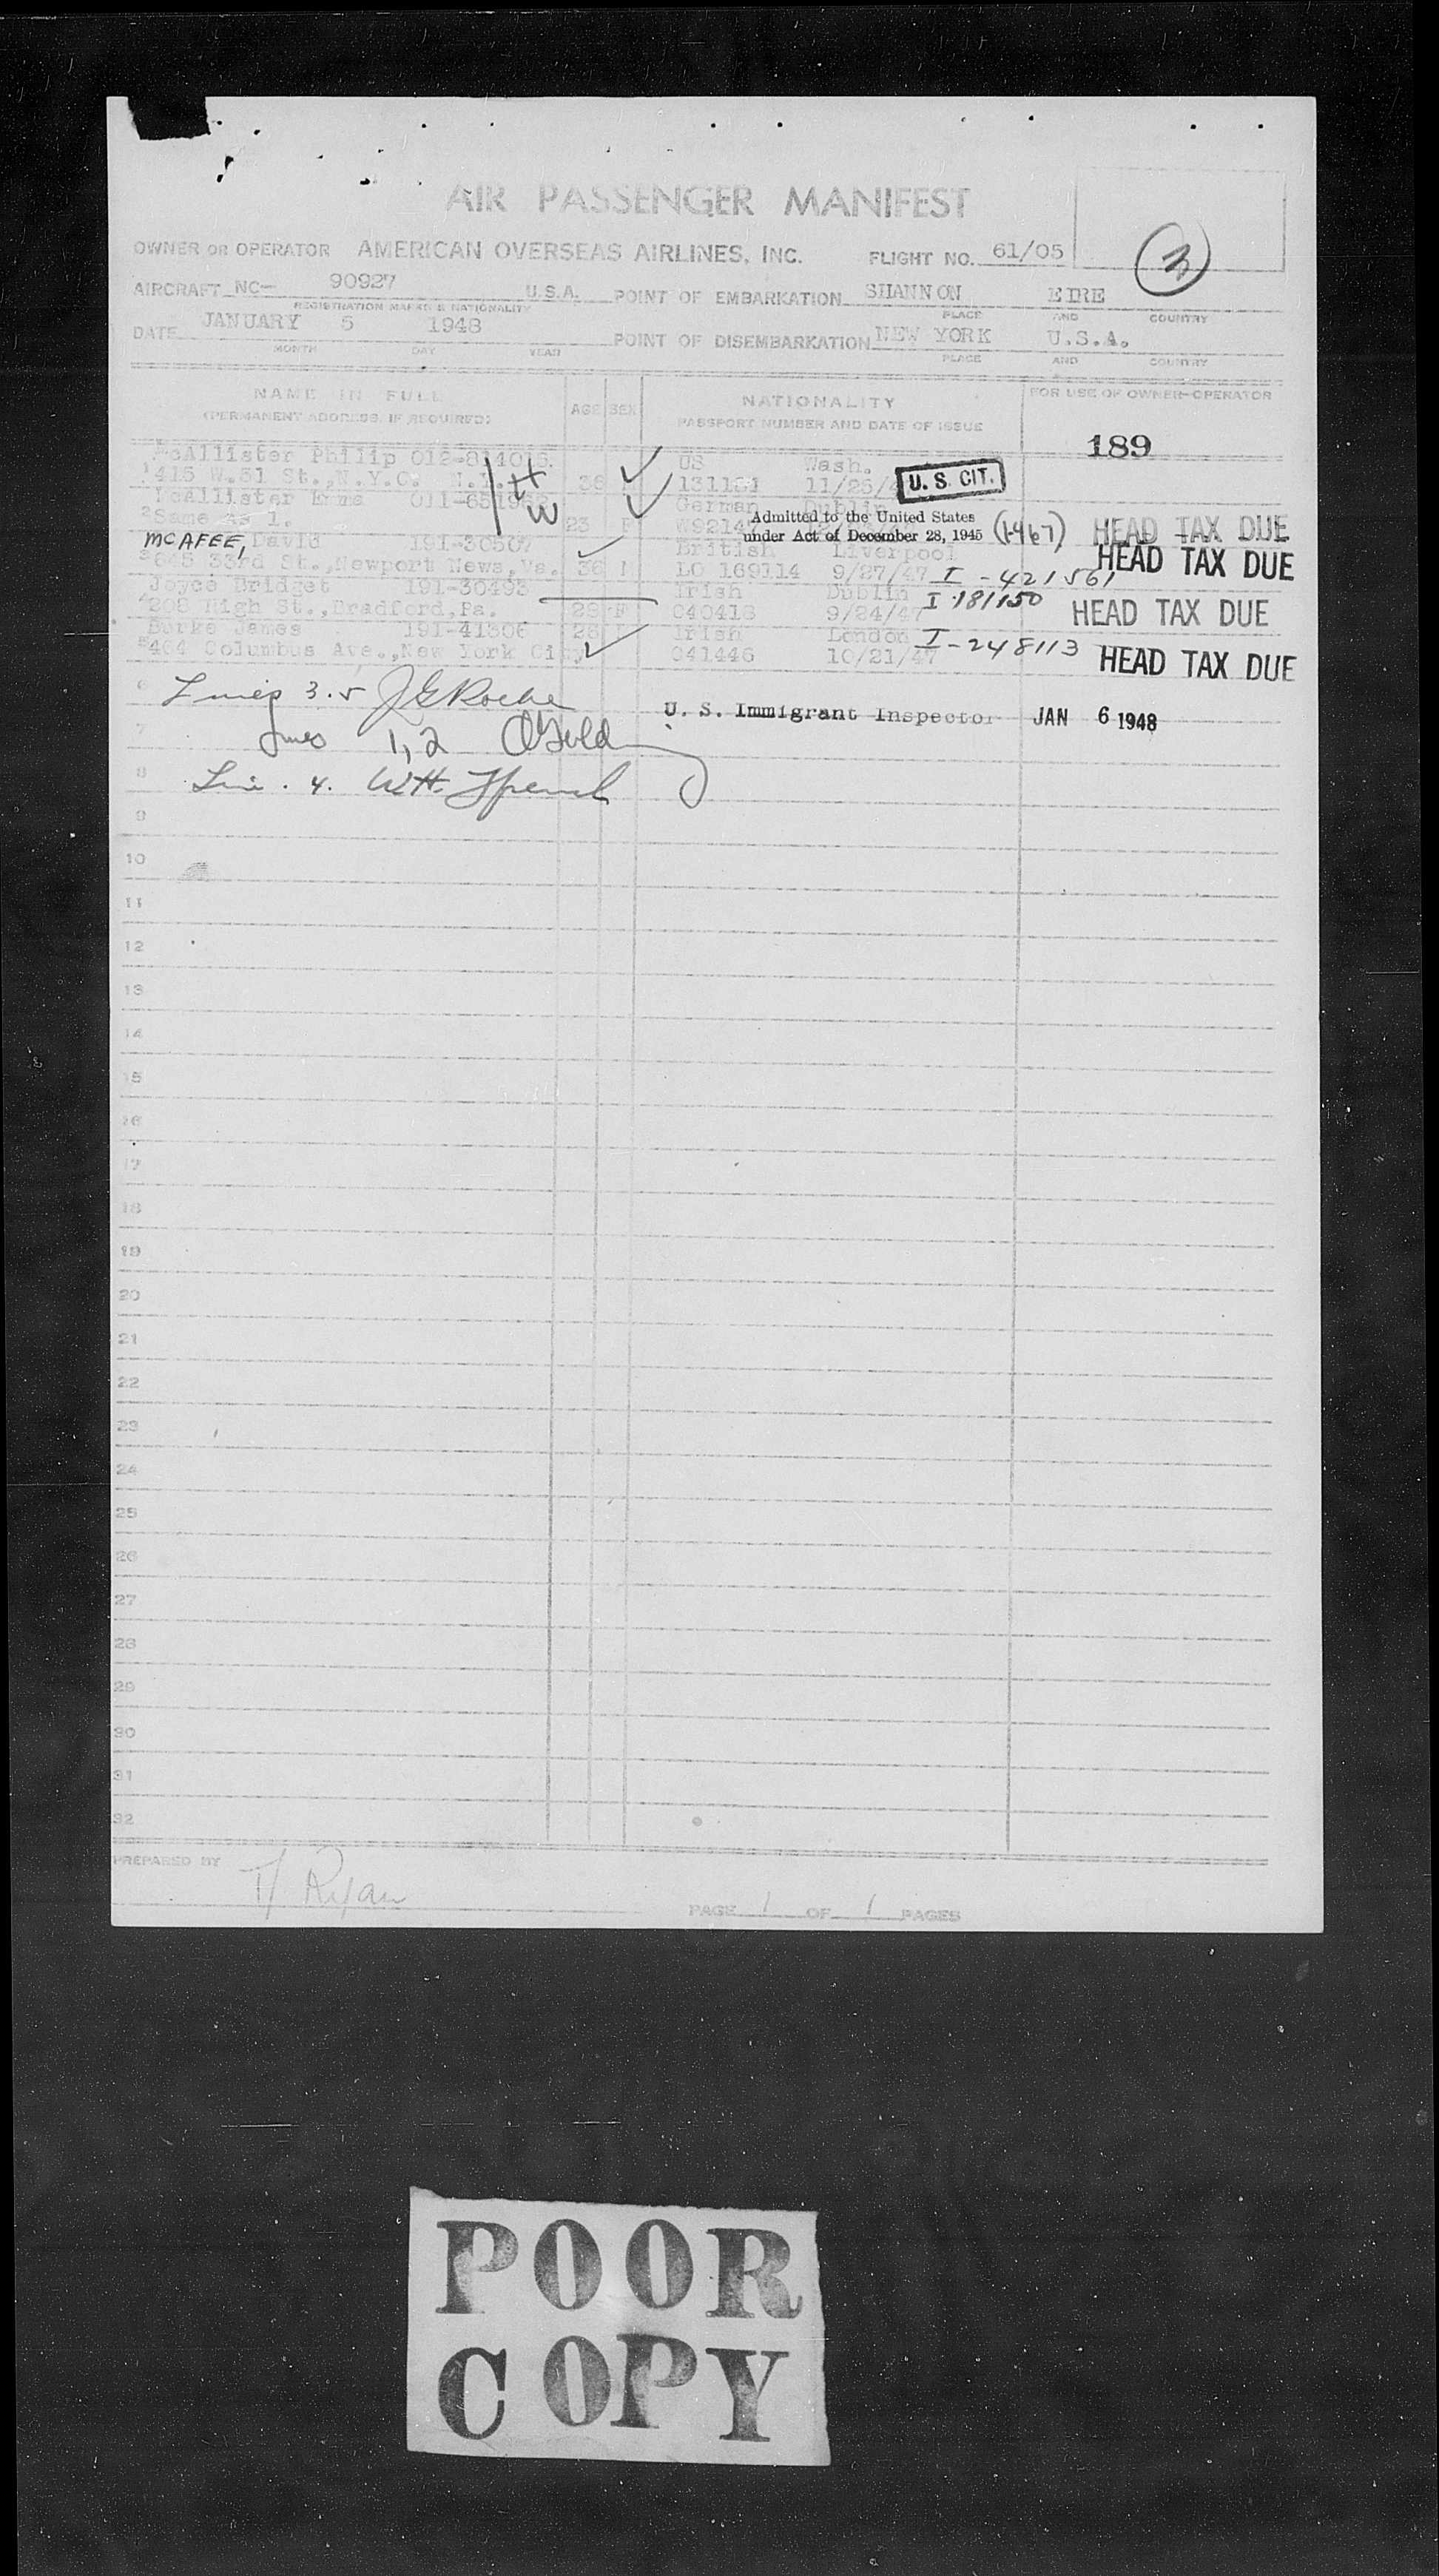 AIR PASSENGER MANIFEST
OWNER OR OPERATOR AMERICAN OVERSEAS AIRLINES, INC. FLIGHT NO. 61/05
3
AIRCRAFT NC— 90927 U.S.A. POINT OF EMBARKATION SHANNON EIRE
REGISTRATION MARKS & NATIONALITY PLACE AND COUNTRY
DATE JANUARY 5 1948 POINT OF DISEMBARKATION NEW YORK U.S.A.
MONTH DAY YEAR PLACE AND COUNTRY
NAME IN FULL AGE SEX NATIONALITY FOR USE OF OWNER-OPERATOR
(PERMANENT ADDRESS, IF REQUIRED) PASSPORT NUMBER AND DATE OF ISSUE
189
McAllister Philip US Wash.
1 415 W.51 St.,N.Y.C. 36 11/25/ U. S. CIT.
H
W
McAllister German Dublin
2 Same as 1. 23 F
Admitted to the United States
under Act of December 28, 1945 (1-467) HEAD TAX DUE
MCAFEE, David 191-30507 British Liverpool
3 645 33rd St.,Newport News,Va. 36 M LO 169114 9/27/47 I-421561 HEAD TAX DUE
Joyce Bridget 191-30493 Irish Dublin
4 208 High St.,Bradford,Pa. 28 F 040418 9/24/47 I-181150 HEAD TAX DUE
Burke James 191-41306 28 Irish London
5 464 Columbus Ave.,New York City 041446 10/21/47 I-248113 HEAD TAX DUE
6 Lines 3.5 J G Roche
U. S. Immigrant Inspector JAN 6 1948
7 Lines 1,2
8 Line. 4. WH.
9
10
11
12
13
14
15
16
17
18
19
20
21
22
23
24
25
26
27
28
29
30
31
32
PREPARED BY T/ Ryan
PAGE 1 OF 1 PAGES
POOR
COPY